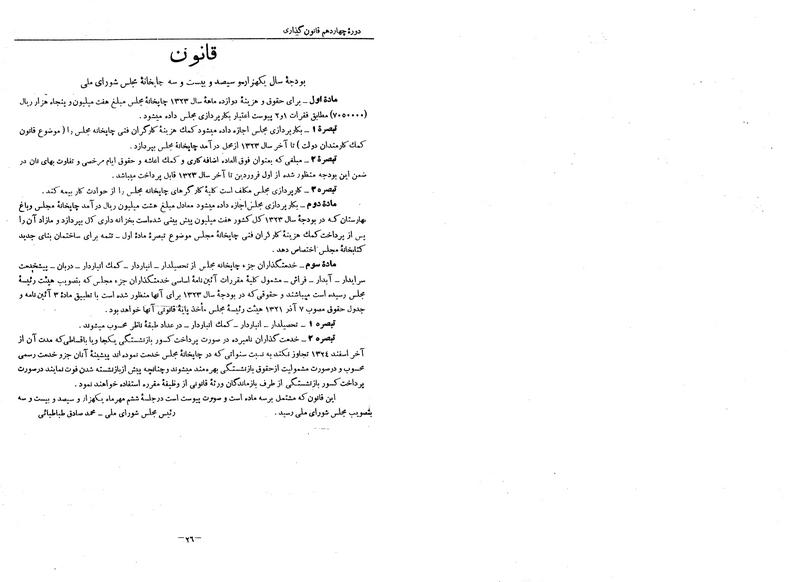 دورهٔ چهاردهم قانون گذاری
قانون
بودجهٔ سال یکهزار و سیصد و بیست و سه چاپخانهٔ مجلس شورای ملی
مادهٔ اول – برای حقوق و هزینهٔ دوازده ماههٔ سال ۱۳۲۳ چاپخانهٔ مجلس مبلغ هفت میلیون و پنجاه هزار ریال
(۷۰۵۰۰۰۰) مطابق فقرات ۱و۲ پیوست اعتبار بکارپردازی مجلس داده میشود .
تبصرهٔ ۱ – بکارپردازی مجلس اجازه داده میشود کمك هزینهٔ کارگران فنی چاپخانه مجلس را ( موضوع قانون
کمك کارمندان دولت ) تا آخر سال ۱۳۲۳ ازمحل درآمد چاپخانهٔ مجلس بپردازد .
تبصرهٔ ۲ – مبلغی که بعنوان فوق العاده اضافه کاری و کمك اعاشه و حقوق ایام مرخصی و تفاوت بهای نان در
ضمن این بودجه منظور شده از اول فروردین تا آخر سال ۱۳۲۳ قابل پرداخت میباشد .
تبصره ۳ – کارپردازی مجلس مکلف است کلیهٔ کارگرهای چاپخانه مجلس را از حوادث کار بیمه کند .
مادهٔ دوم – بکارپردازی مجلس اجازه داده میشود معادل مبلغ هشت میلیون ریال درآمد چاپخانهٔ مجلس وباغ
بهارستان که در بودجهٔ سال ۱۳۲۳ کل کشور هفت میلیون پیش بینی شده‌است بخزانه داری کل بپردازد و مازاد آن را
پس از پرداخت کمك هزینهٔ کارگران فنی چاپخانهٔ مجلس موضوع تبصرهٔ مادهٔ اول – تتمه برای ساختمان بنای جدید
کتابخانهٔ مجلس اختصاص دهد .
مادهٔ سوم – خدمتگذاران جزء چاپخانه مجلس از تحصیلدار – انباردار – کمك انباردار – دربان – پیشخدمت
سرایدار – آبدار – فراش – مشمول کلیهٔ مقررات آئین‌نامهٔ اساسی خدمتگذاران جزء مجلس که بتصویب هیئت رئیسهٔ
مجلس رسیده است میباشند و حقوقی که در بودجهٔ سال ۱۳۲۳ برای آنها منظور شده است با تطبیق مادهٔ ۳ آئین‌نامه و
جدول حقوق مصوب ۷ آذر ۱۳۲۱ هیئت رئیسهٔ مجلس ، مأخذ پایهٔ قانونی آنها خواهد بود .
تبصره ۱ – تحصیلدار – انباردار – کمك انباردار – در عداد طبقهٔ ناظر محسوب میشوند .
تبصره ۲ – خدمت گذاران نامبرده در صورت پرداخت کسور بازنشستگی یکجا ویا باقساطی که مدت آن از
آخر اسفند ۱۳۲۴ تجاوز نکند به نسبت سنواتی که در چاپخانهٔ مجلس خدمت نموده اند پیشینهٔ آنان جزو خدمت رسمی
محسوب و درصورت مشمولیت از حقوق بازنشستگی بهره‌مند میشوند وچنانچه پیش از بازنشسته شدن فوت نمایند درصورت
پرداخت کسور بازنشستگی از طرف بازماندگان ورثهٔ قانونی از وظیفهٔ مقرره استفاده خواهند نمود .
این قانون که مشتمل برسه ماده است و صورت پیوست است درجلسهٔ ششم مهرماه یکهزار و سیصد و بیست و سه
بتصویب مجلس شورای ملی رسید . رئیس مجلس شورای ملی – محمد صادق طباطبائی
–۲۶–